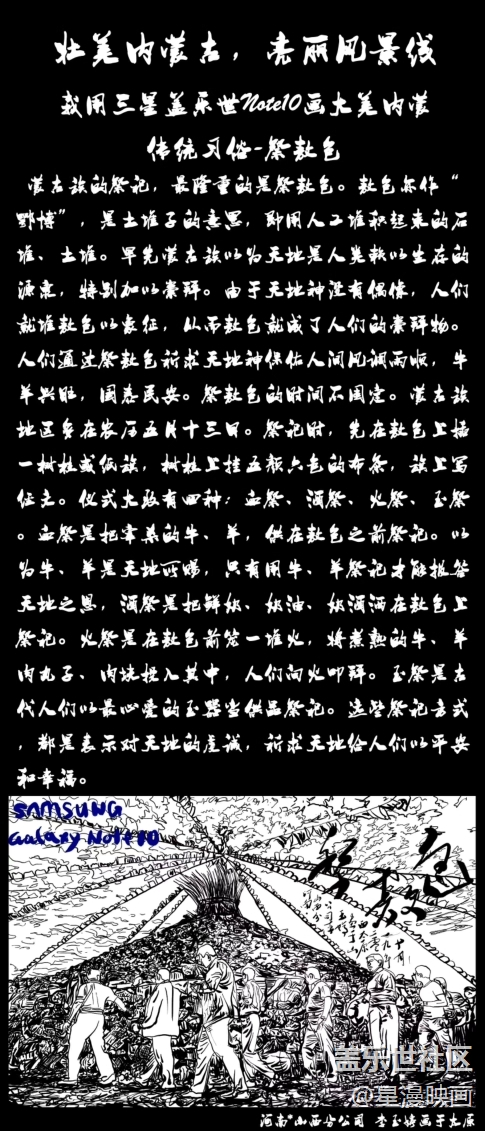 壮美内蒙古，亮丽风景线
我用三星盖乐世Note10画大美内蒙
传统习俗-祭敖包
蒙古族的祭祀，最隆重的是祭敖包。敖包亦作“
鄂博”，是土堆子的意思，即用人工堆积起来的石
堆、土堆。早先蒙古族以为天地是人类赖以生存的
源泉，特别加以崇拜。由于天地神没有偶像，人们
就堆敖包以象征，从而敖包就成了人们的崇拜物。
人们通过祭敖包祈求天地神保佑人间风调雨顺，牛
羊兴旺，国泰民安。祭敖包的时间不固定。蒙古族
地区多在农历五月十三日。祭祀时，先在敖包上插
一树枝或纸旗，树枝上挂五颜六色的布条，旗上写
经文。仪式大致有四种：血祭、酒祭、火祭、玉祭
。血祭是把宰杀的牛、羊，供在敖包之前祭祀。以
为牛、羊是天地所赐，只有用牛、羊祭祀才能报答
天地之恩，酒祭是把鲜奶、奶油、奶酒洒在敖包上
祭祀。火祭是在敖包前笼一堆火，将煮熟的牛、羊
肉丸子、肉块投入其中，人们向火叩拜。玉祭是古
代人们以最心爱的玉器当供品祭祀。这些祭祀方式
，都是表示对天地的虔诚，祈求天地给人们以平安
和幸福。
SAMSUNG
Galaxy Note10
祭敖包
盖乐世社区
@星漫映画
河南山西分公司 李玉婷画于太原